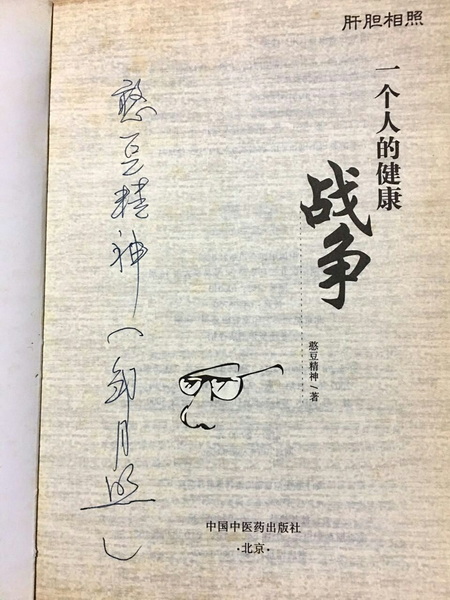 肝胆相照
一个人的健康
战争
憨豆精神/著
憨豆精神(月照)
中国中医药出版社
·北京·